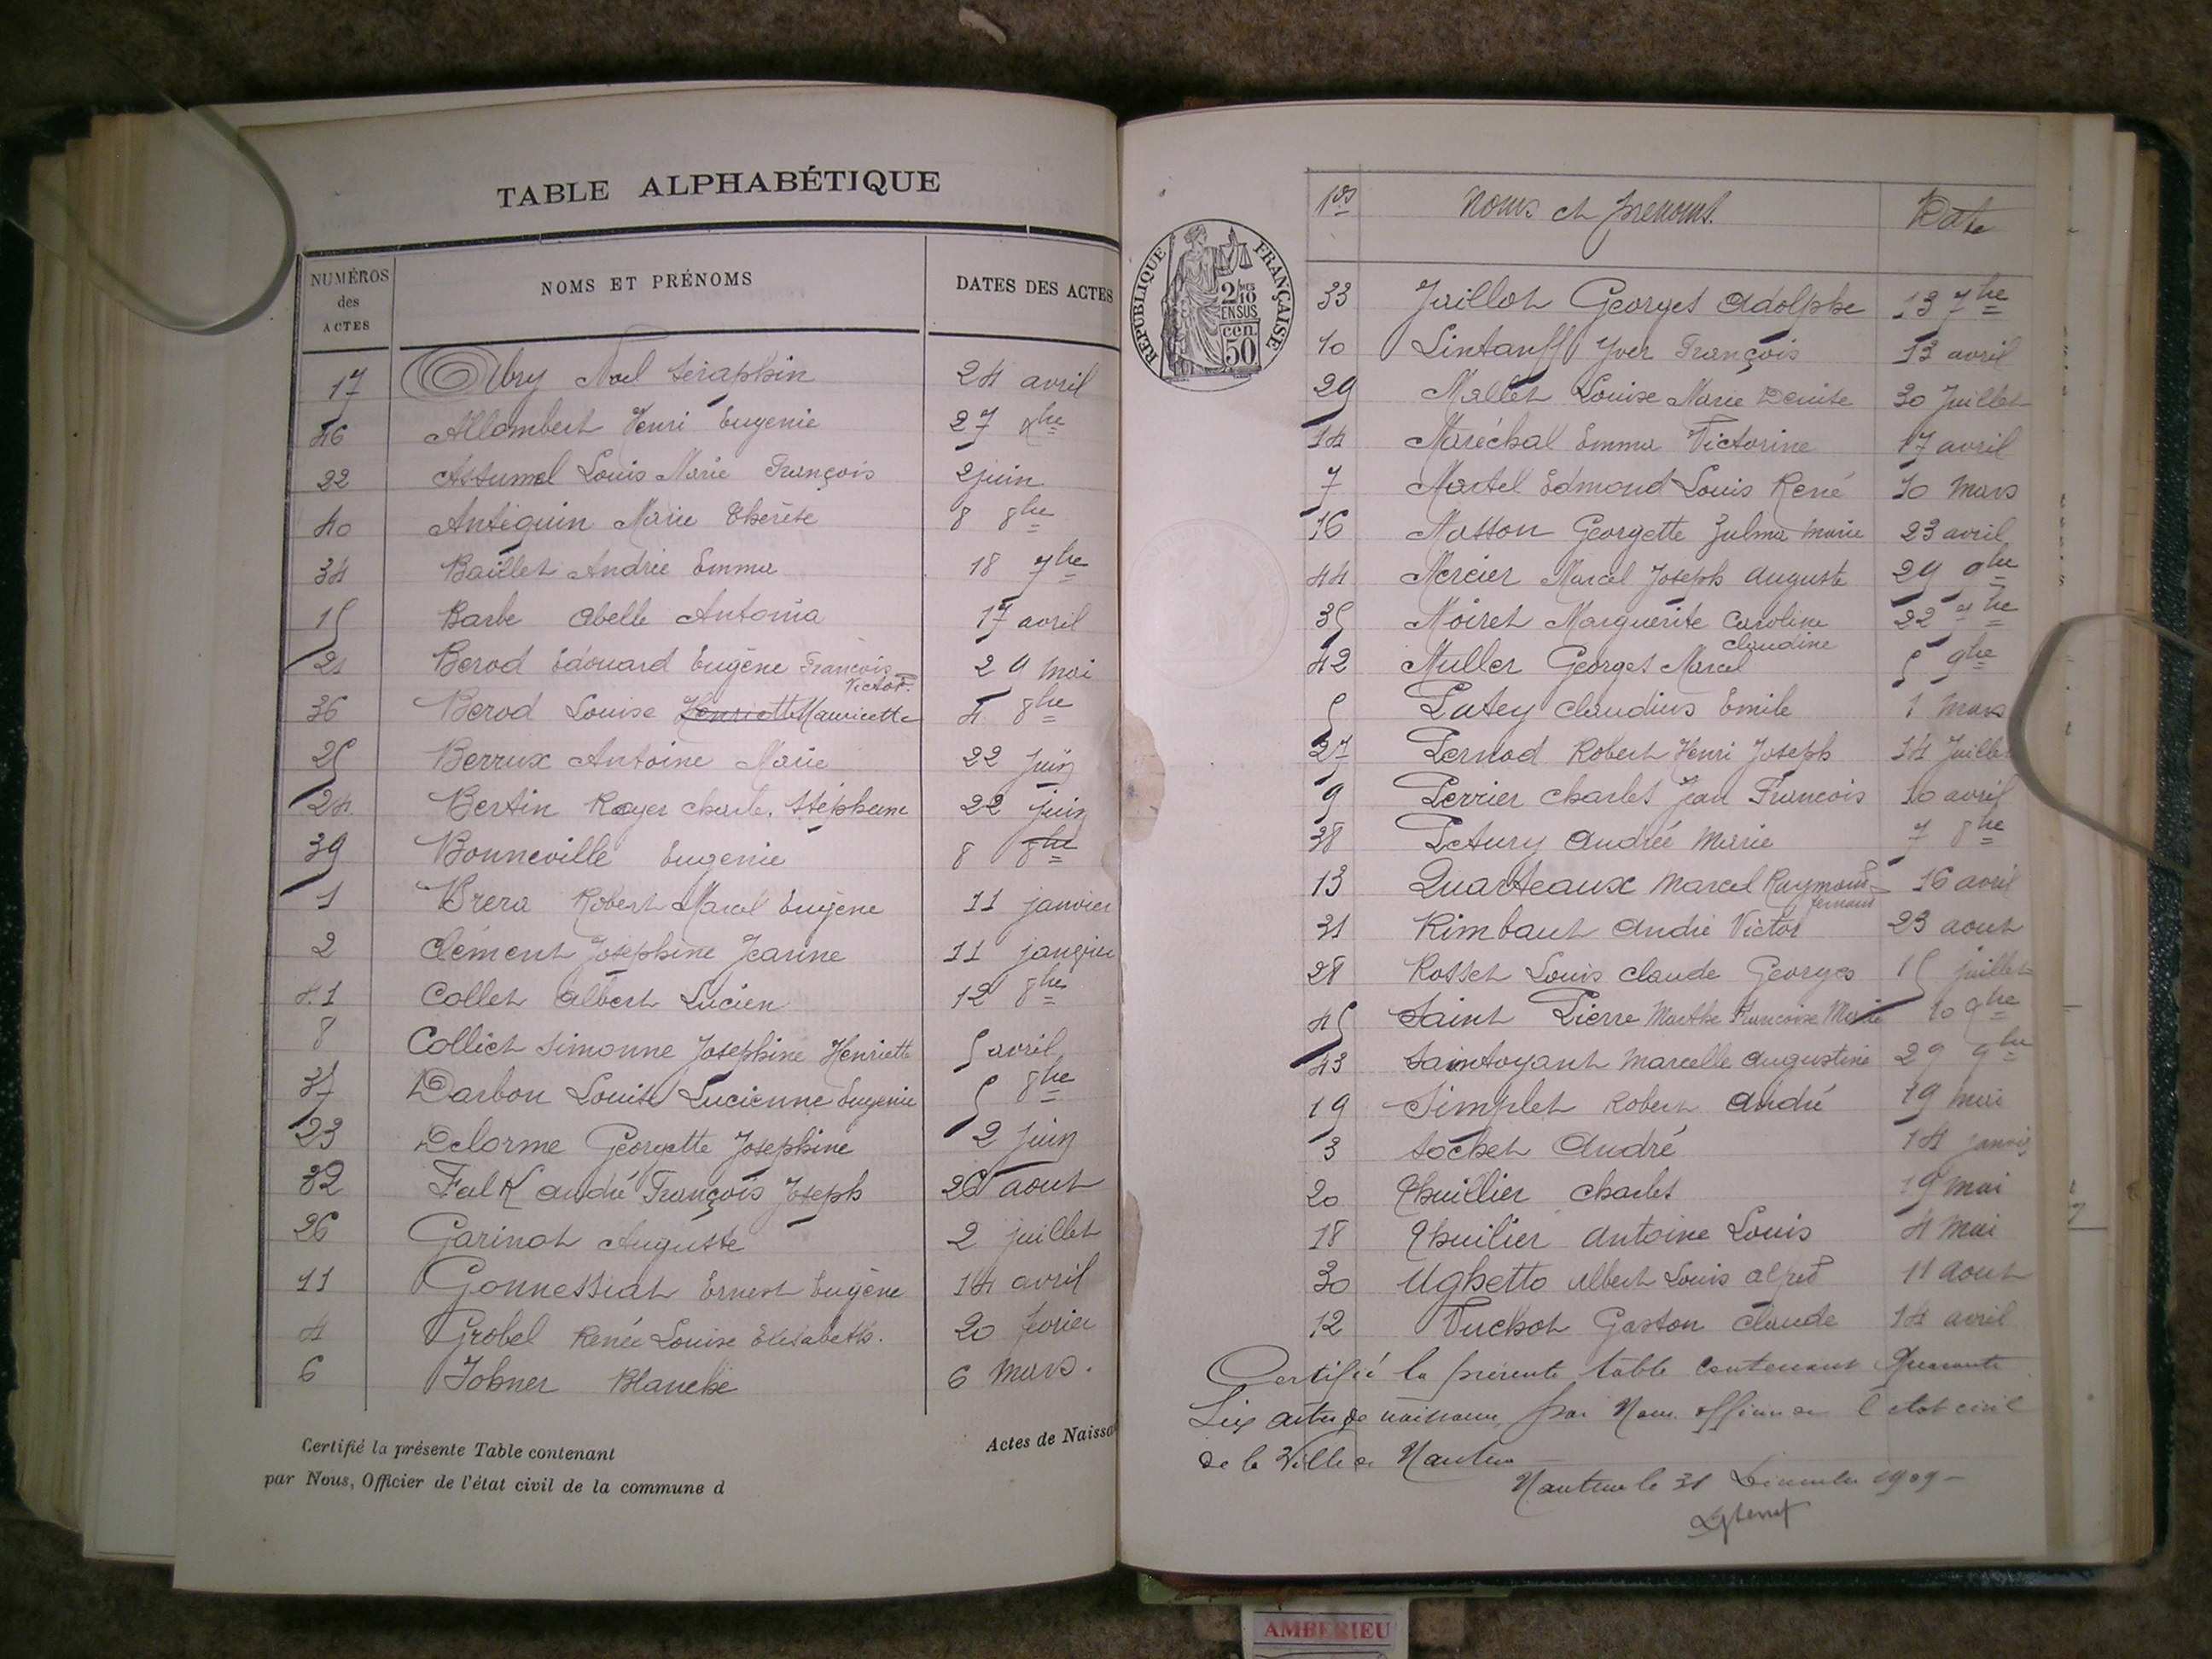 TABLE ALPHABÉTIQUE
NUMÉROS des ACTES NOMS ET PRÉNOMS DATES DES ACTES
17 Abry Noel Séraphin 24 avril
46 Allombert Henri Eugenie 27 Xbre
22 Assumel Louis Marie François 2 juin
40 Antiquin Marie Thérèse 8 8bre
34 Baillet Andrée Emma 18 7bre
15 Barbe Abelle Antonia 17 avril
21 Berod Edouard Eugène François Victor 29 mai
36 Berod Louise Henriette Mauricette 4 8bre
25 Berrux Antoine Marie 22 juin
24 Bertin Royer Charles Stéphane 22 juin
39 Bonneville Eugenie 8 8bre
1 Brera Robert Marcel Eugène 11 janvier
2 Clément Joséphine Jeanne 11 janvier
41 Collet Albert Lucien 12 8bre
8 Collict Simonne Joséphine Henriette 5 avril
37 Darbon Louise Lucienne Eugenie 5 8bre
23 Delorme Georgette Josephine 2 juin
32 Falk André François Joseph 26 aout
26 Garinot Auguste 2 juillet
11 Gonnessiat Ernest Eugène 14 avril
4 Grobel Renée Louise Elisabeth. 20 fevrier
6 Johner Blanche 6 mars.
Certifié la présente Table contenant Actes de Naissa
par Nous, Officier de l'état civil de la commune d
RÉPUBLIQUE FRANÇAISE
2/10
EN SUS
cen.
50
Nos Noms et prenoms. Date
33 Jaillot Georges Adolphe 13 7bre
10 Lintanff Yver François 13 avril
29 Mallet Louise Marie Denise 30 Juillet
14 Maréchal Emma Victorine 17 avril
7 Martel Edmond Louis René 10 mars
16 Masson Georgette Zulma Marie 23 avril
44 Mercier Marcel Joseph Auguste 29 9bre
35 Moiret Marguerite Caroline Claudine 22 7bre
42 Muller Georges Marcel 5 9bre
5 Patey Claudius Emile 1 mars
27 Pernod Robert Henri Joseph 14 Juillet
9 Perrier Charles Jean François 10 avril
38 Petury Andrée Marie 7 8bre
13 Quarteaux Marcel Raymond fernand 16 avril
31 Rimbaut André Victor 23 aout
28 Rosset Louis Claude Georges 15 juillet
45 Saint Pierre Marthe Françoise Marie 10 9bre
43 Saintoyant Marcelle Augustine 29 9bre
19 Simplet Robert André 19 mai
3 Sochet André 14 janvier
20 Thuillier Charles 19 mai
18 Thuilier Antoine Louis 4 mai
30 Ughetto Albert Louis alfred 11 aout
12 Vuchot Gaston Claude 14 avril
Certifié la présente table contenant Quarante
Six actes de naissance par Nous officier de l'état civil
de la Ville de Nantua
Nantua le 31 Décembre 1909 -
AMBERIEU